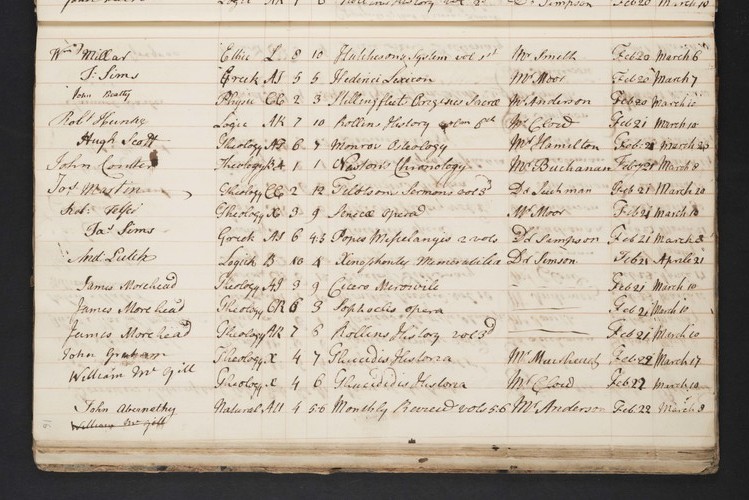 Logic AK 7 6 Rollins History vol 2d Dr Simpson Feb 20 March 10
Wm Millar Ethic L. 8 10 Hutchesons System vol 1st Mr Smith Feb 20 March 6
J: Sims Greek AI 5 5 Hederici Lexicon Mr Moor Feb 20 March 7
John Beatty Physic CE 2 3 Stillingfleets Origines Sacrae Mr Anderson Feb 20 March 10
Robt Logic AK 7 10 Rollins History 6th Mr Clow Feb 21 March 10
Hugh Scott Theology 6 7 Monros Osteology Mr Hamilton Feb: 21 March 20
John Theology 1 1 Newtons Chronology Mr Buchanan Feb 21 March 8
Jos Martin Theology CC 2 12 Tillotsons Sermons vol 3d Dr Leechman Feb 21 March 10
Theology X 3 9 Seneca opera Mr Moor Feb 21 March 10
Jas Sims Greek AI 6 4.5 Popes Miscelanyes 2 vols Dr Simpson Feb 21 March 8
And: Leitch Logick B 10 4 Xenophontis Memorabilia Dr Simson Feb 21 April 21
James Morehead Theology AI 3 9 Cicero Feb 21 March 10
James Morehead Theology CR 6 3 Sophocles opera Feb 21 March 10
James Morehead Theology AK 7 6 Rollins History vol 3d Feb 21 March 10
John Graham Theology X 4 7 Historia Mr Muirhead Feb 22 March 17
William McGill Theology X 4 6 Historia Mr Clow Feb 22 March 10
John Abernethy Natural AU 4 5.6 Monthly Review vols 5.6 Mr Anderson Feb: 22 March 8
William McGill